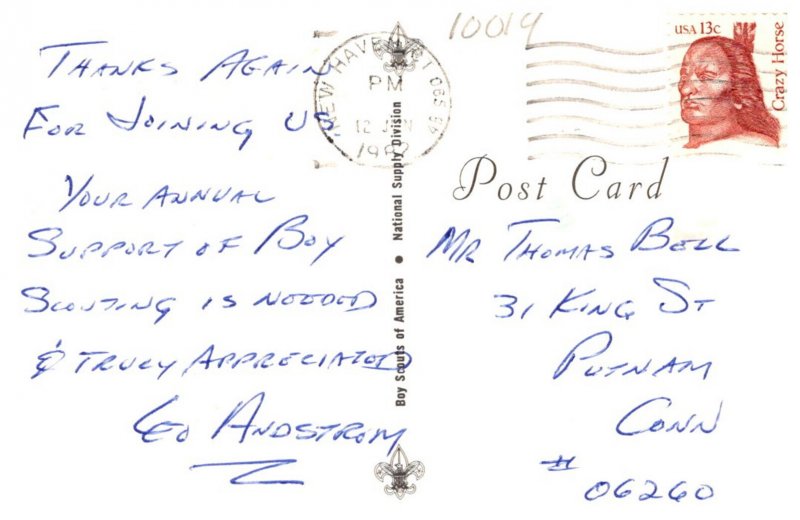 THANKS AGAIN
FOR JOINING US
YOUR ANNUAL
SUPPORT OF BOY
SCOUTING IS NEEDED
& TRULY APPRECIATED
LEO ANDSTROM
Boy Scouts of America ● National Supply Division
NEW HAVEN CT 065
PM
12 JAN
1982
10019
USA 13c
Crazy Horse
Post Card
MR THOMAS BELL
31 KING ST
PUTNAM
CONN
# 06260